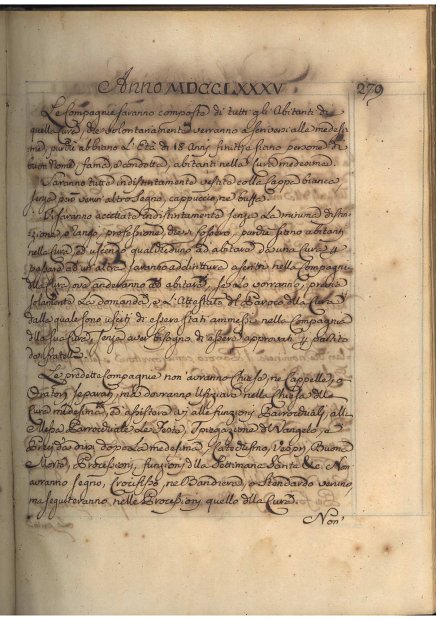 Anno MDCCLXXXV
279
Le Compagnie saranno composte di tutti gli Abitanti di
quella Cura, che volontariamente verranno a scriversi alle medesi-
me, purché abbiano l'Età di 18 Anni finiti, e siano persone di
buon Nome, fama, e condotta, abitanti nella Cura medesima.
Saranno tutte indistintamente vestite colla Cappa bianca
senza però verun altro Segno, cappuccio, ne buffa.
Vi saranno accettate indistintamente senza La minima distin-
zione, e rango, professione, che vi fossero, purché siano abitanti
nella Cura, ed uscendo qualcheduno ad abitare da una Cura e
passare ad un'altra saranno addirittura ascritti nella Compagnia
della Cura, ove anderanno ad abitare, se Lo vorranno, previa
solamente La domanda, e L'Attestato del Paroco della Cura
dalla quale sono usciti di essere stati ammessi nella Compagnia
della sua Cura, senza aver bisogno di essere approvati per partito
dai fratelli.
Le predette Compagnie non avranno Chiesa, ne Cappelle, o
Oratorj separati, ma dovranno Ufiziare nella Chiesa della
Cura medesima, ed assistere a, alle funzioni Parrocchiali, alla
Messa Parrocchiale Le Feste, Spiegazione di Vangelo, e
dopo La medesima, Catechismo, Vespri, Buona
Morte, Processioni, funzioni della Settimana Santa &c. Non
avranno segno, Crocifisso, ne Bandiera, o Stendardo veruno,
ma seguiteranno nelle Processioni quello della Cura.
Non